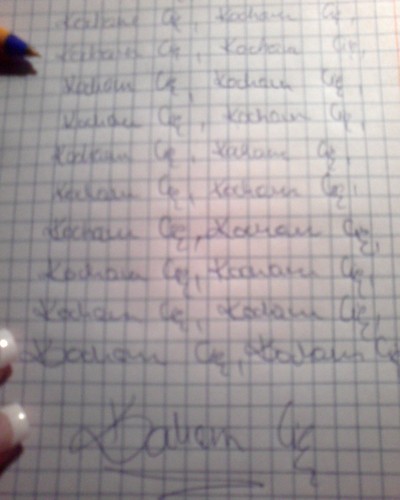 Kocham Cię, Kocham Cię,
Kocham Cię, Kocham Cię,
Kocham Cię, Kocham Cię,
Kocham Cię, Kocham Cię,
Kocham Cię, Kocham Cię,
Kocham Cię, Kocham Cię,
Kocham Cię, Kocham Cię,
Kocham Cię, Kocham Cię,
Kocham Cię, Kocham Cię,
Kocham Cię, Kocham Cię
Kocham Cię